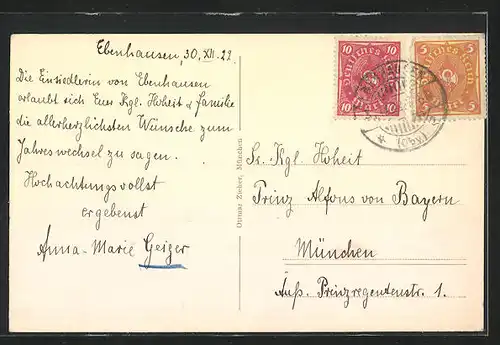 Ebenhausen, 30. XII. 22.
Die Einsiedlerin von Ebenhausen
erlaubt sich Euer Kgl. Hoheit & Familie
die allerherzlichsten Wünsche zum
Jahreswechsel zu sagen.
Hochachtungsvollst
ergebenst
Anna-Marie Geiger
Ottmar Zieher, München
10 10
Deutsches Reich
10 10
5 5
Deutsches Reich
5 5
Sr. Kgl. Hoheit
Prinz Alfons von Bayern
München
Äuß. Prinzregentenstr. 1.